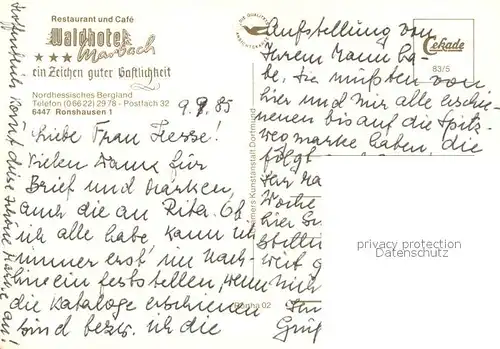 Restaurant und Café
Waldhotel
Marbach
ein Zeichen guter Gastlichkeit
Nordhessisches Bergland
Telefon (0 66 22) 29 78 - Postfach 32
6447 Ronshausen 1
9.9.85
Liebe Frau Hesse!
Vielen Dank für
Brief und Marken,
auch die an Rita. Ob
ich alle habe, kann ich
immer erst im Nach-
hinein feststellen, wenn
die Kataloge erschienen
sind bezw. ich die
Aufstellung von
Ihrem Mann ha-
be. Sie müßten von
hier und mir alle erschie-
nenen bis auf die Spitz-
wegmarke haben, die
folgt
Ihr Ma
Woche
hier Gr
stellun
weit g
mich
Ihn
Grüß
Hoffentlich kommt diese schöne Marke an!
Cekade
83/5
Kunstanstalt Dortmund
02
privacy protection
Datenschutz